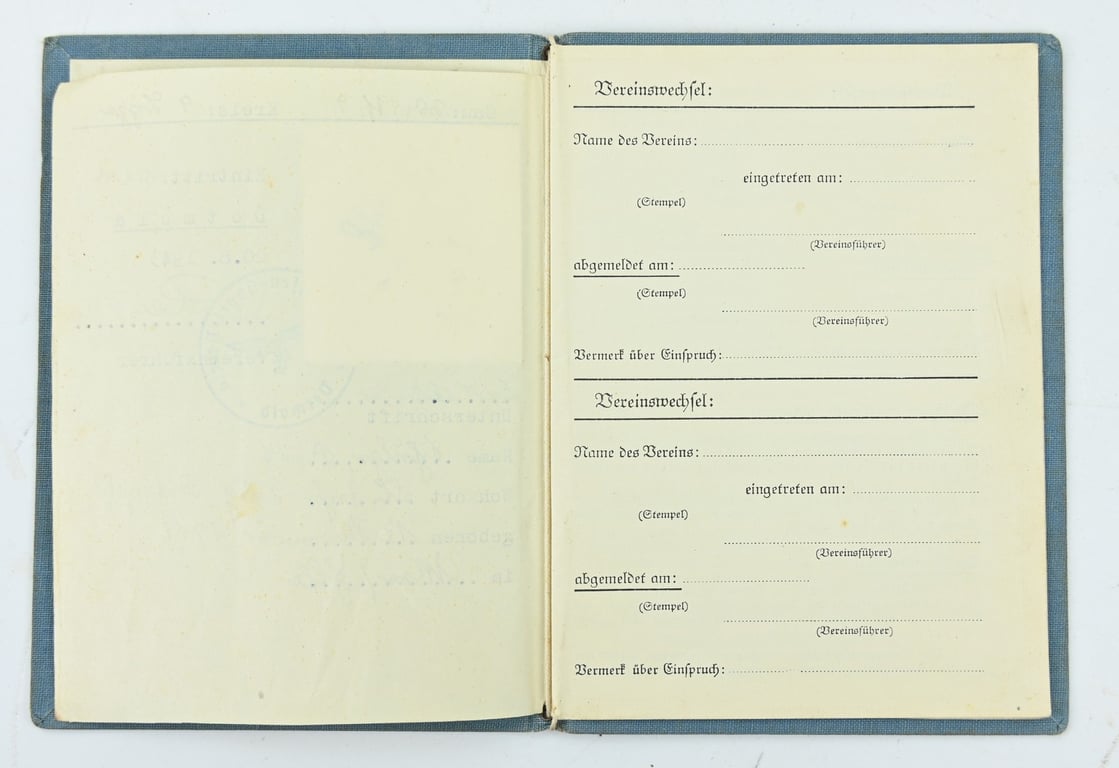 Vereinswechsel:
Name des Vereins:
eingetreten am:
(Stempel)
(Vereinsführer)
abgemeldet am:
(Stempel)
(Vereinsführer)
Vermerk über Einspruch:
Vereinswechsel:
Name des Vereins:
eingetreten am:
(Stempel)
(Vereinsführer)
abgemeldet am:
(Stempel)
(Vereinsführer)
Vermerk über Einspruch: